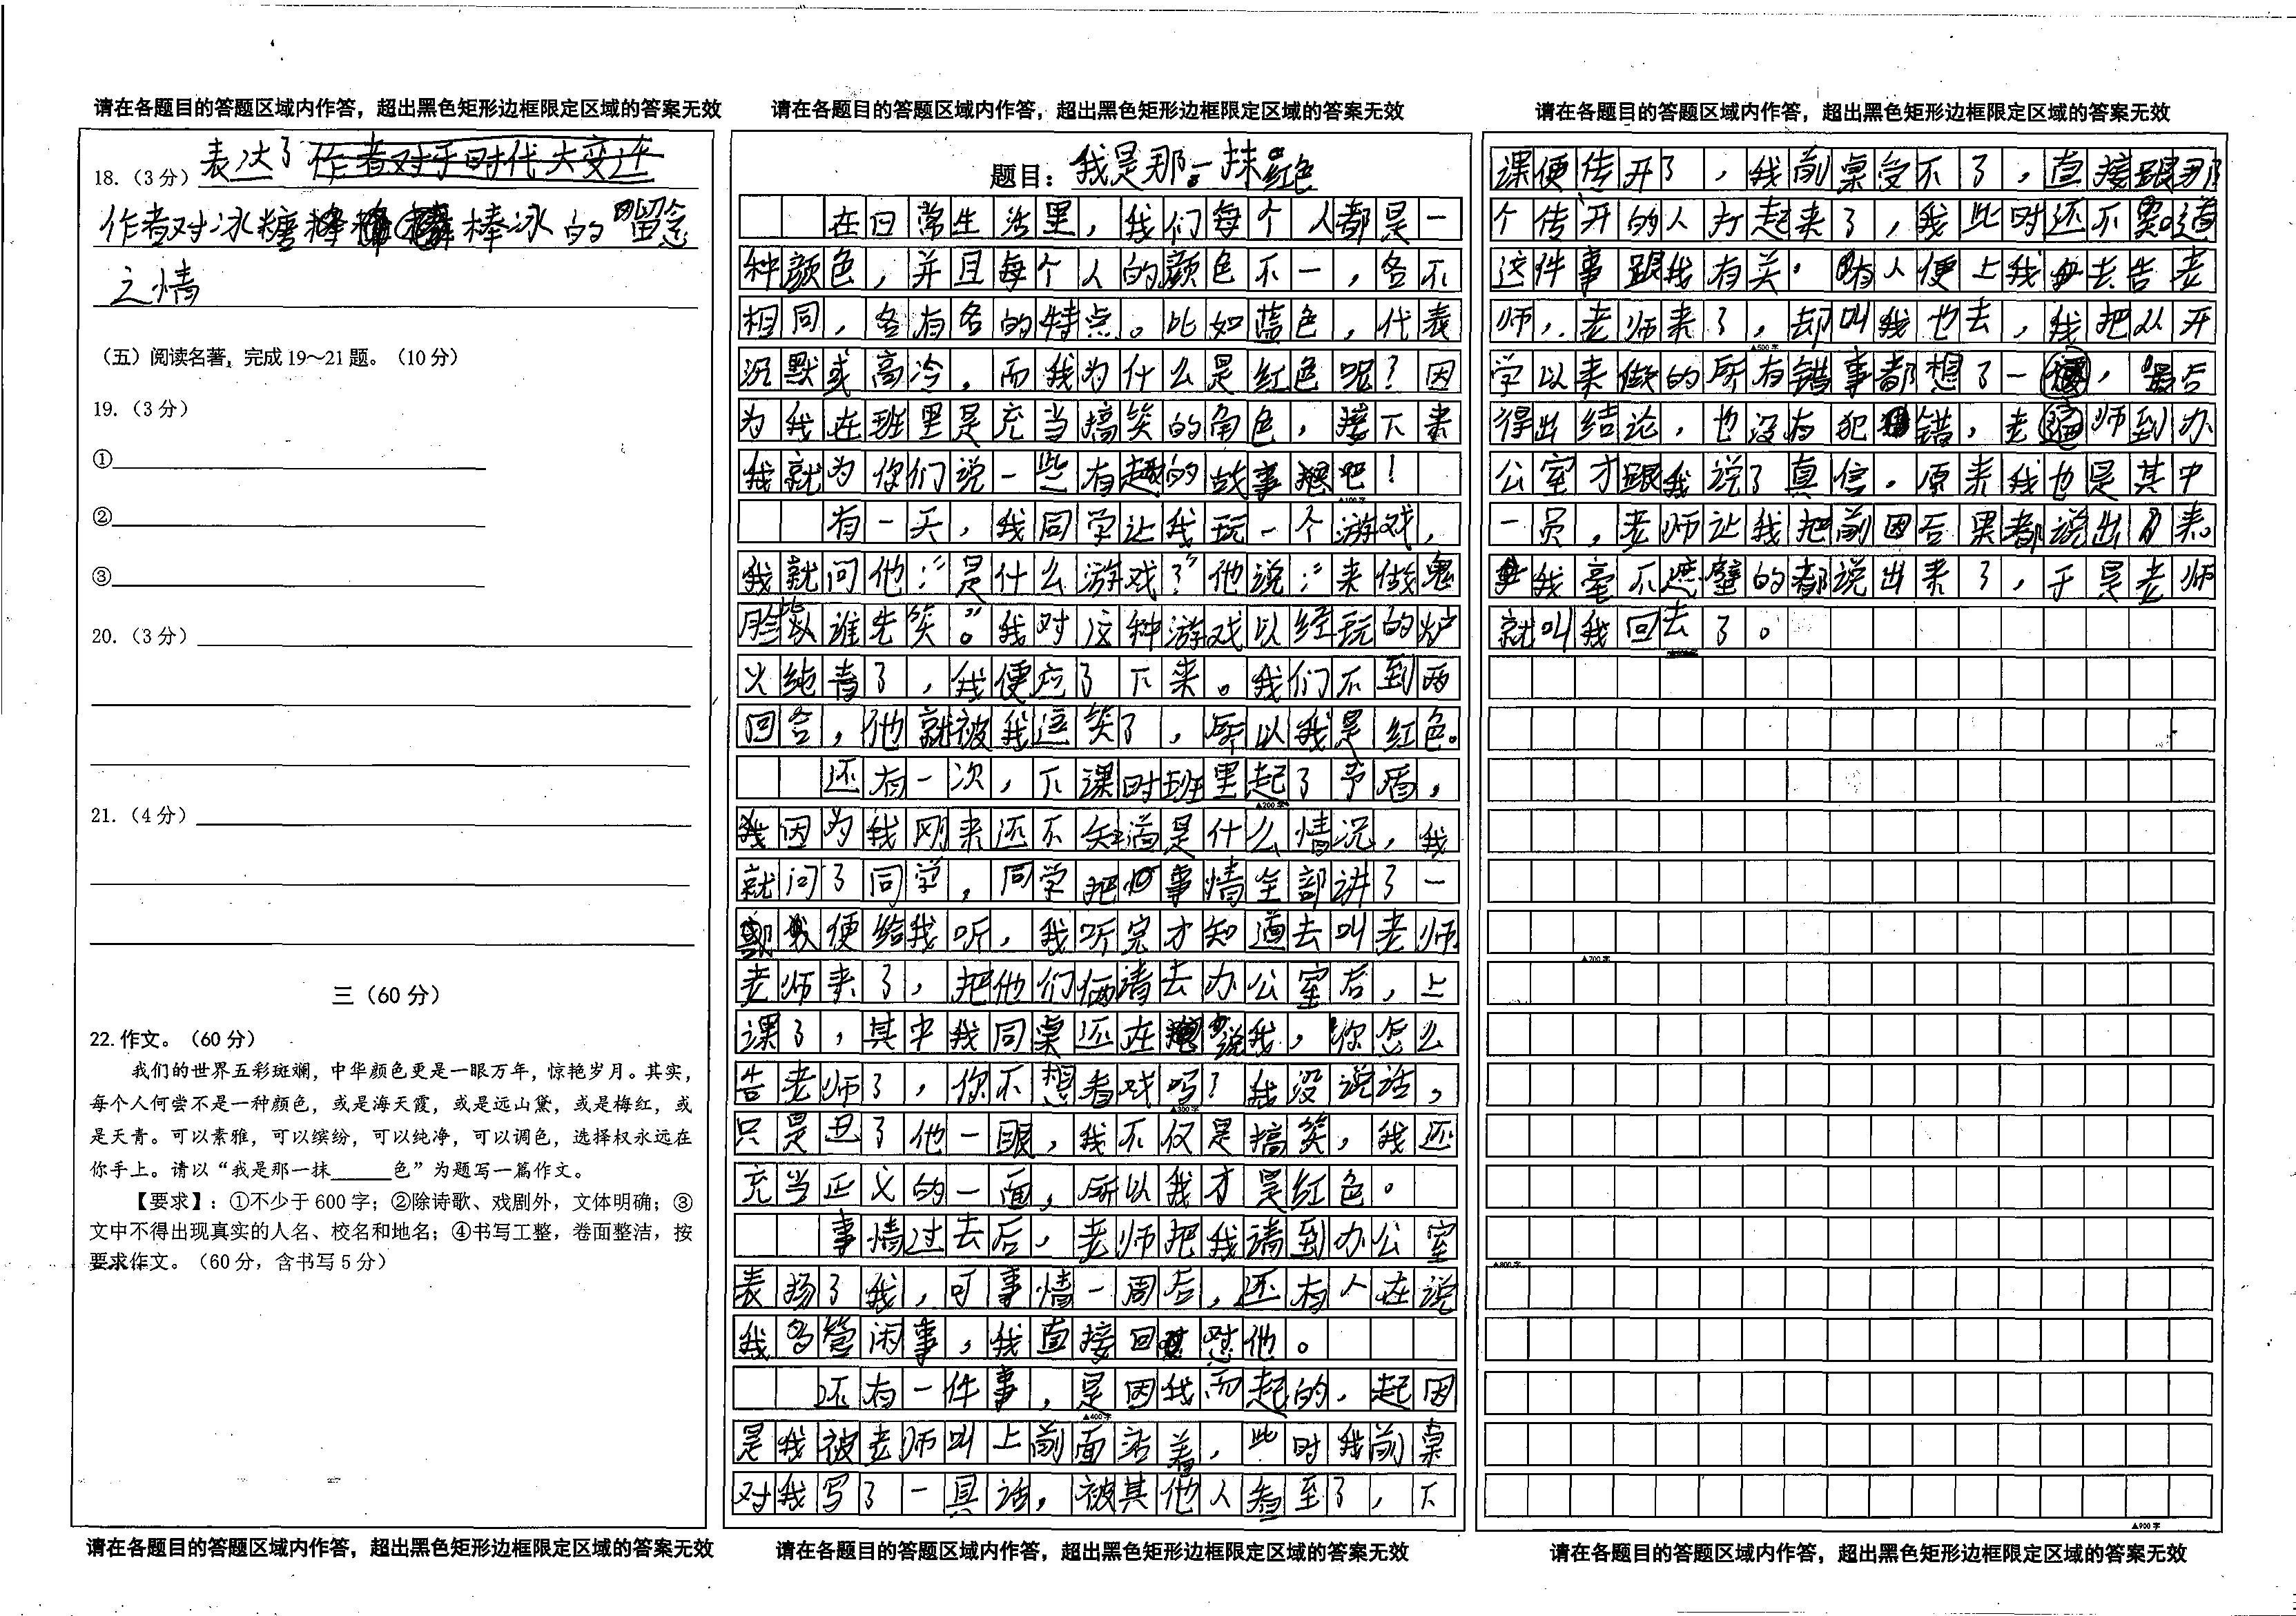 请在各题目的答题区域内作答，超出黑色矩形边框限定区域的答案无效
18.（3分）表达了作者对于时代大变迁
作者对冰糖棒冰的留念
之情
（五）阅读名著，完成19～21题。（10分）
19.（3分）
①
②
③
20.（3分）
21.（4分）
三（60分）
22.作文。（60分）
我们的世界五彩斑斓，中华颜色更是一眼万年，惊艳岁月。其实，
每个人何尝不是一种颜色，或是海天霞，或是远山黛，或是梅红，或
是天青。可以素雅，可以缤纷，可以纯净，可以调色，选择权永远在
你手上。请以“我是那一抹______色”为题写一篇作文。
【要求】：①不少于600字；②除诗歌、戏剧外，文体明确；③
文中不得出现真实的人名、校名和地名；④书写工整，卷面整洁，按
要求作文。（60分，含书写5分）
请在各题目的答题区域内作答，超出黑色矩形边框限定区域的答案无效
请在各题目的答题区域内作答，超出黑色矩形边框限定区域的答案无效
题目：我是那一抹红色
在日常生活里，我们每个人都是一
种颜色，并且每个人的颜色不一，各不
相同，各有各的特点。比如蓝色，代表
沉默或高冷。而我为什么是红色呢？因
为我在班里是充当搞笑的角色，接下来
我就为你们说一些有趣的故事吧！
▲100字
有一天，我同学让我玩一个游戏，
我就问他：“是什么游戏？”他说：“来做鬼
脸，看谁先笑。”我对这种游戏以经玩的炉
火纯青了，我便应了下来。我们不到两
回合，他就被我逗笑了，所以我是红色。
还有一次，下课时班里起了予盾，
▲200字
因为我刚来还不知道是什么情况，我
就问了同学，同学把事情全部讲了一
便给我听，我听完才知道去叫老师
老师来了，把他们俩请去办公室后，上
课了，其中我同桌还在说我，你怎么
告老师了，你不想看戏吗？我没说话，
▲300字
只是丑了他一眼，我不仅是搞笑，我还
充当正义的一面，所以我才是红色。
事情过去后，老师把我请到办公室
表扬了我，可事情一周后，还有人在说
我多管闲事，我直接回怼他。
还有一件事，是因我而起的，起因
▲400字
是我被老师叫上前面站着，此时我前桌
对我写了一具话，被其他人看至了，下
请在各题目的答题区域内作答，超出黑色矩形边框限定区域的答案无效
请在各题目的答题区域内作答，超出黑色矩形边框限定区域的答案无效
课便传开了，我前桌受不了，直接跟那
个传开的人打起来了，我此时还不知道
这件事跟我有关。有人便上去告老
师，老师来了，却叫我也去，我把从开
▲500字
学以来做的所有错事都想了一遍，最后
得出结论，也没有犯错，老师到办
公室才跟我说了真信。原来我也是其中
一员，老师让我把前因后果都说出来。
我毫不遮壁的都说出来了，于是老师
就叫我回去了。
▲700字
▲800字
▲900字
请在各题目的答题区域内作答，超出黑色矩形边框限定区域的答案无效